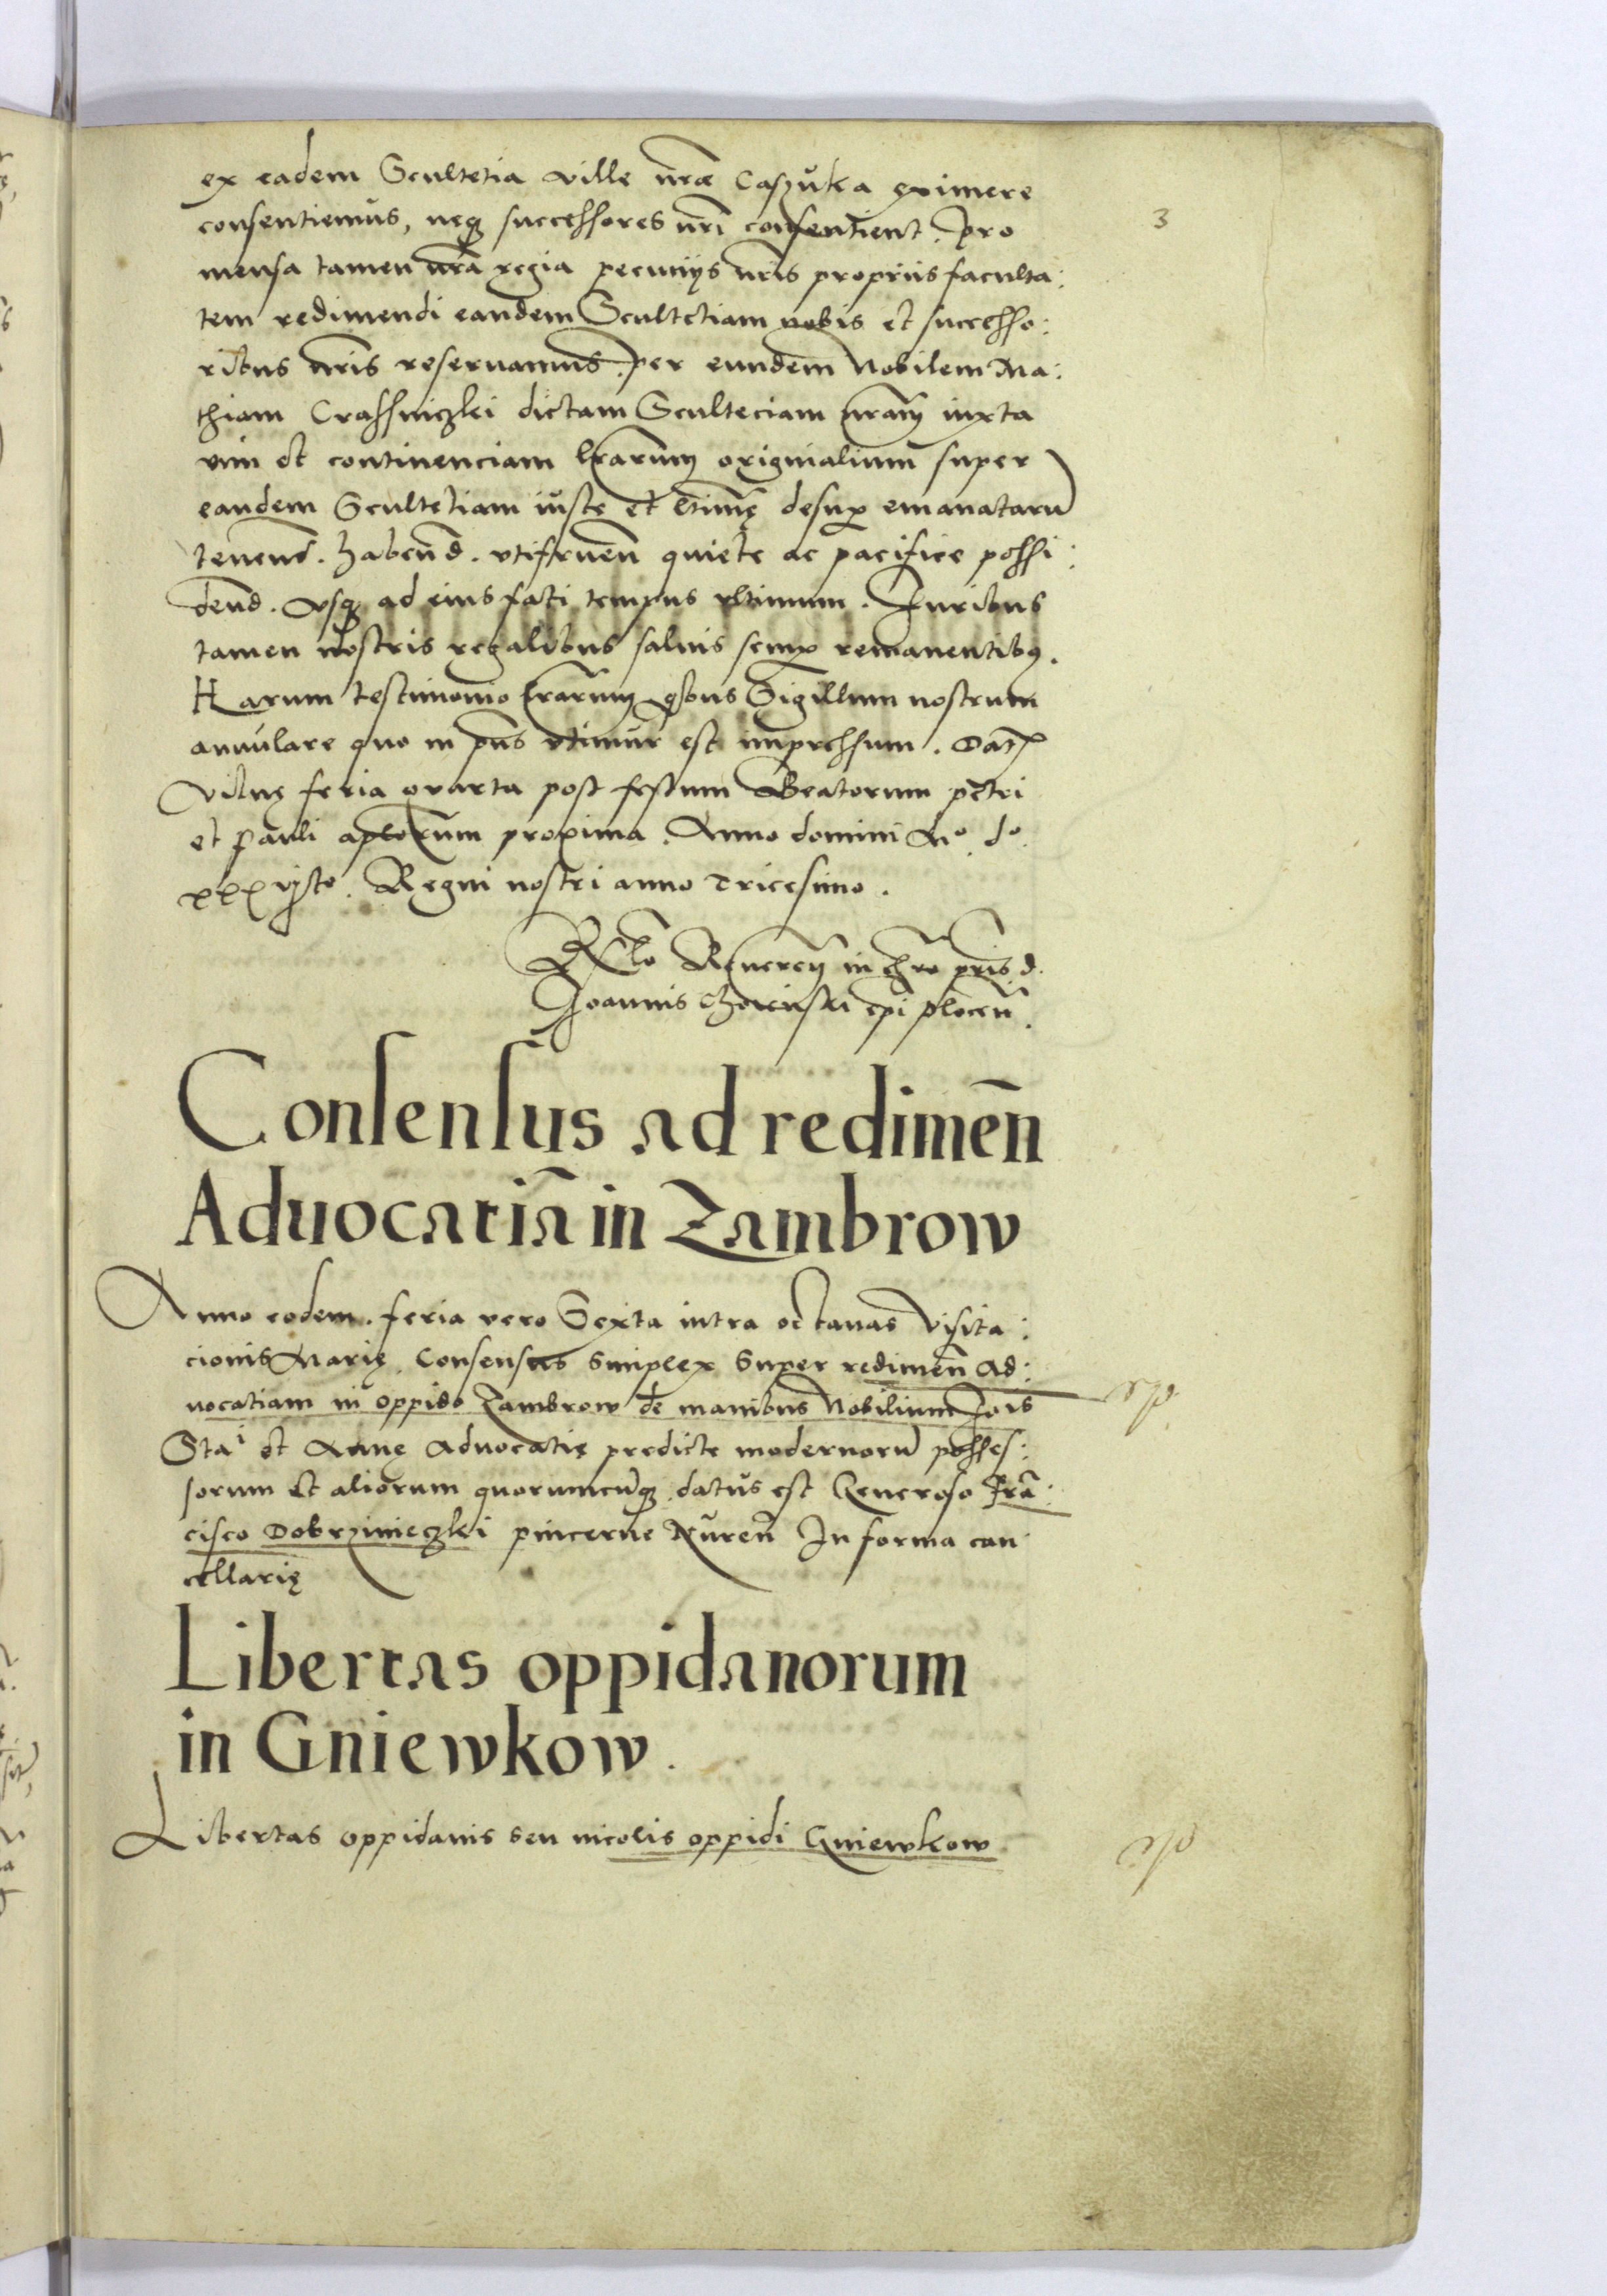 3
ex eadem Scultetia ville nr̃æ Caszuka eximere
consentiemus, neq̃ successores nr̃i consentient. Pro
mensa tamen nr̃a regia pecuniis nr̃is propriis faculta:
tem redimendi eandem Scultetiam nobis et successo:
ribus nr̃is reservamus. per eundem Nobilem Ma:
thiam Crassniczki dictam Sculteciam nr̃am iuxta
vim et continenciam lr̃arum originalium super
eandem Scultetiam iuste et ltimę desup emanatarũ
tenend. habend. utifruen̄ quiete ac pacifice possi:
dend. usq̃ ad eius fati tempus ultimum. Iuribus
tamen nostris regalibus salvis semp remanentibꝰ.
Harum testimonio lr̃arum qbus Sigillum nostrum
annulare quo in pn̄s utimur est impressum. Dat
Vilnę feria quarta post festum Beatorum petri
et Pauli aplorum proxima. Anno domini Mº. dº.
xxxvjsto. Regni nostri anno Tricesimo.
Rlo Reveren̄ in chro pr̃is d.
Joannis Choinski epi plocen̄.
Consensus ad redimen̄
Advocatiã in Zambrow
Anno eodem. feria vero Sexta intra octavas Visita:
cionis Marię. Consensus simplex super redimen̄ Ad:
vocatiam in oppido Zambrow de manibus Nobilium Jois
Stai et Annę Advocatię predicte modernorũ posses:
sorum et aliorum quorumcunq̃ datus est Generoso Frã:
cisco Dobrzinieczki pincerne Nuren̄ In forma can
cellarię
Libertas oppidanorum
in Gniewkow.
Libertas oppidanis seu incolis oppidi Gniewkow